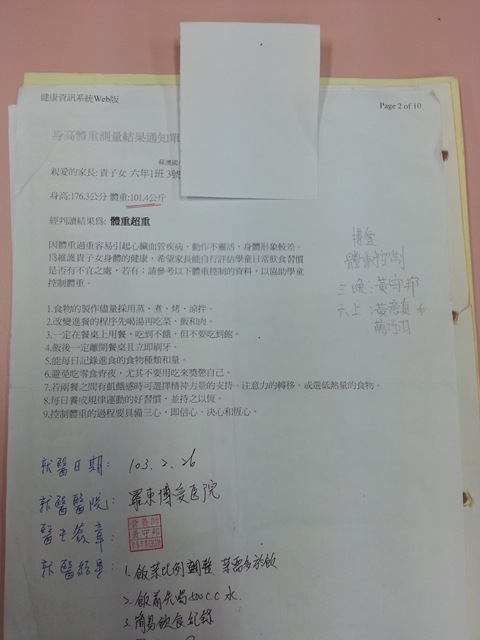 健康資訊系統Web版
Page 2 of 10
身高體重測量結果通知單
蘇澳國
親愛的家長: 貴子女 六年1班 3號
身高:176.3公分 體重:101.4公斤
經判讀結果為: 體重超重
因體重過重容易引起心臟血管疾病，動作不靈活，身體形象較差。
為維護貴子女身體的健康，希望家長能自行評估學童日常飲食習慣
是否有不宜之處，若有；請參考以下體重控制的資料，以協助學童
控制體重。
1.食物的製作儘量採用蒸、煮、烤、涼拌。
2.改變進餐的程序先喝湯再吃菜、飯和肉。
3.一定在餐桌上用餐，吃到不餓，但不要吃到飽。
4.飯後一定離開餐桌且立即刷牙。
5.能每日記錄進食的食物種類和量。
6.避免吃零食宵夜，尤其不要用吃來獎懲自己。
7.若兩餐之間有飢餓感時可選擇精神力量的支持、注意力的轉移，或選低熱量的食物。
8.每日養成規律運動的好習慣，並持之以恆。
9.控制體重的過程要具備三心，即信心、決心和恆心。
體重控制
三晚:黃守邦
六上:
就醫日期: 103.2.26
就醫醫院: 羅東博愛医院
醫生簽章:
黃守邦
就醫結果: 1.飯菜比例調整 菜需多於飯
2.飯前先喝500c.c水.
3.簡易飲食紀錄